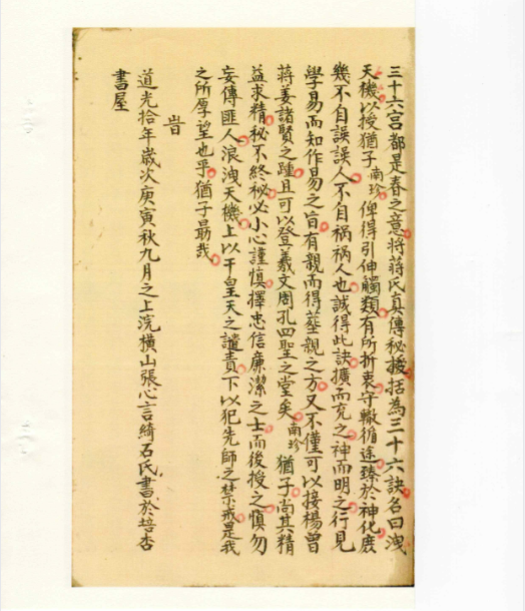 三十六宮都是春之意將蔣氏真傳秘授括為三十六訣名曰洩
天機以授猶子南珍俾得引伸觸類有所折衷守轍循途臻於神化庶
幾不自誤誤人不自禍禍人也誠得此訣擴而充之神而明之行見
學易而知作易之旨有親而得塟親之方又不僅可以接楊曾
蔣姜諸賢之踵且可以登羲文周孔四聖之堂矣南珍猶子尚其精
益求精秘不終秘必小心謹慎擇忠信廉潔之士而後授之慎勿
妄傳匪人浪洩天機上以干皇天之譴責下以犯先師之禁戒是我
之所厚望也乎猶子勗哉
旹
道光拾年歲次庚寅秋九月之上浣橫山張心言綺石氏書於培杏
書屋